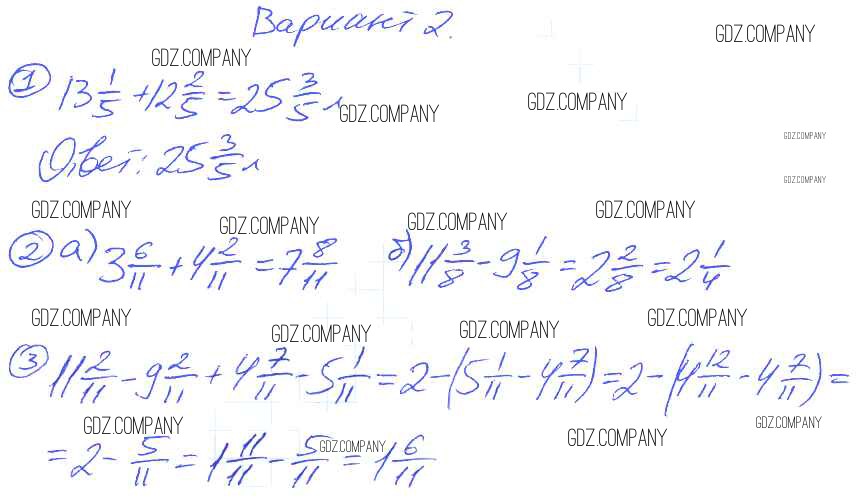 Вариант 2.
GDZ.COMPANY
GDZ.COMPANY
① 13 1/5 + 12 2/5 = 25 3/5 л
GDZ.COMPANY GDZ.COMPANY
GDZ.COMPANY
Ответ: 25 3/5 л
GDZ.COMPANY
GDZ.COMPANY GDZ.COMPANY GDZ.COMPANY GDZ.COMPANY
② а) 3 6/11 + 4 2/11 = 7 8/11 б) 11 3/8 - 9 1/8 = 2 2/8 = 2 1/4
GDZ.COMPANY GDZ.COMPANY GDZ.COMPANY GDZ.COMPANY
③ 11 2/11 - 9 2/11 + 4 7/11 - 5 1/11 = 2 - (5 1/11 - 4 7/11) = 2 - (4 12/11 - 4 7/11) =
GDZ.COMPANY GDZ.COMPANY GDZ.COMPANY GDZ.COMPANY
= 2 - 5/11 = 1 11/11 - 5/11 = 1 6/11